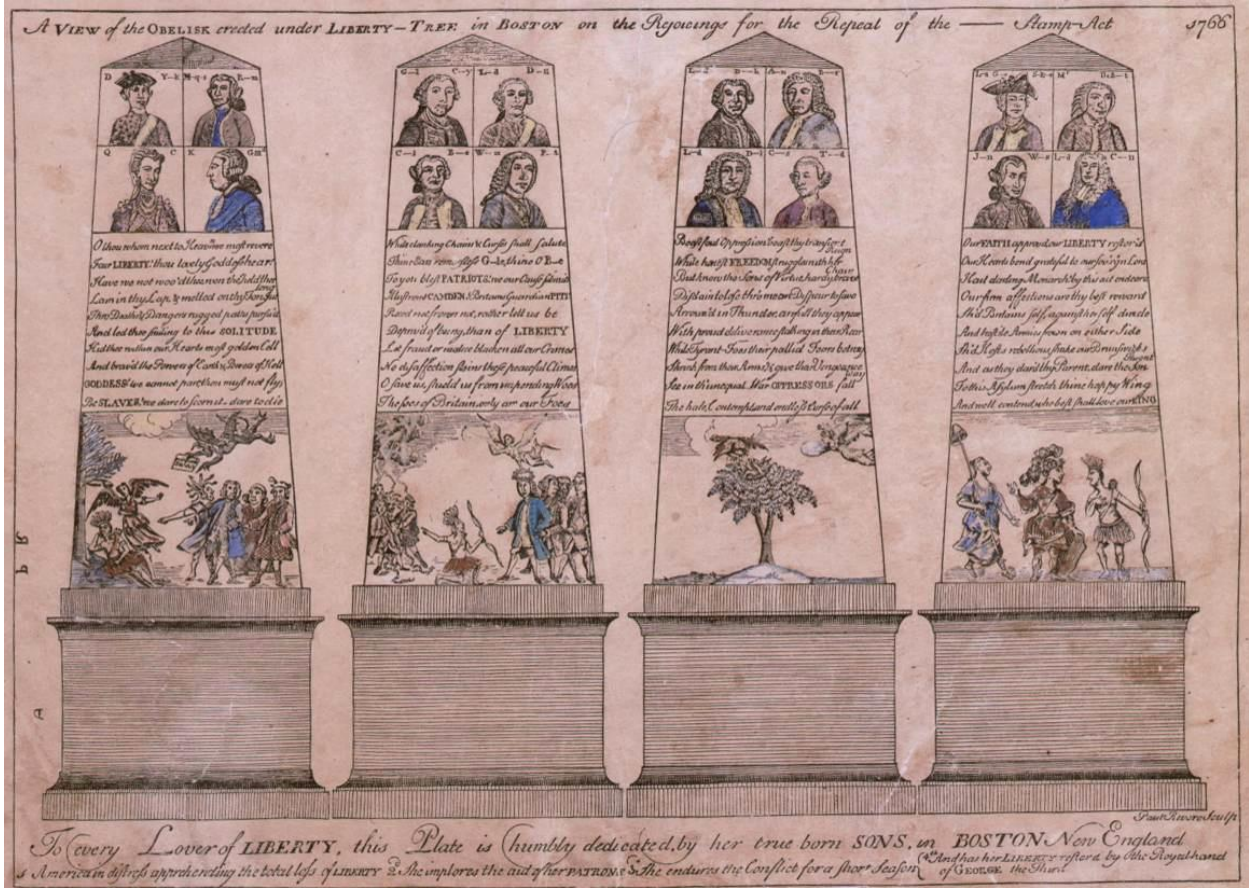 A VIEW of the OBELISK erected under LIBERTY-TREE in BOSTON on the Rejoicings for the Repeal of the —— Stamp-Act 1766
D Y-k M-q-s R-m
Q C K G III
G-l C-y L-d D-n
C-l B-e W-m P-t
L-d
L-d D-l C-s T-d
J-n W-s L-d C-n
O thou whom next to Heav'n we most revere
Fair LIBERTY! thou lovely Goddess hear!
Have we not woo'd thee, won thee, held thee long
Lain in thy Lap & melted on thy Tongue
Thro Deaths & Dangers rugged paths pursu'd
And led thee smiling to this SOLITUDE
Hid thee within our Hearts most golden Cell
And brav'd the Powers of Earth & Powers of Hell
GODDESS! we cannot part, thou must not fly
Be SLAVES! we dare to scorn it_dare to die
While clanking Chains & Curses shall salute
Thine Ears remorseless G-le, thine O B-e
To you blest PATRIOTS, we our Cause submit
Illustrious CAMDEN, Britains Guardian PITT
Recede not, frown not, rather let us be
Depriv'd of being, than of LIBERTY
Let fraud or malice blacken all our Crimes
No disaffection stains these peaceful Climes
O save us, shield us from impending Woes
The foes of Britain, only are our Foes
Boast foul Oppression, boast thy transient Reign
While honest FREEDOM struggles with her Chain
But know the Sons of Virtue, hardy, brave
Disdain to lose thro' mean Dispair to save
Arrouz'd in Thunder, awfull they appear
With proud deliverance stalking in their Rear
While Tyrant-Foes their pallid Fears betray
Shrink from their Arms, & give their Vengeance way
See in th' unequal War OPPRESSORS fall
The hate, contempt, and endless Curse of all
Our FAITH approv'd, our LIBERTY restor'd
Our Hearts bend grateful to our sov'reign Lord
Hail darling Monarch! by this act endear'd
Our firm affections are thy best reward
Sh'd Britains self, against herself divide
And hostile Armies frown on either Side
Sh'd Hosts rebellious, shake our Brunswick's
And as they dar'd thy Parent, dare the Son
To this Asylum stretch thine happy Wing
And we'll contend, who best shall love our KING
Paul Revere Sculp
To every Lover of LIBERTY, this Plate is humbly dedicated, by her true born SONS, in BOSTON New England
America in distress apprehending the total loss of LIBERTY 2 She implores the aid of her PATRONS 3 She endures the Conflict for a short Season 4 And has her LIBERTY restor'd by the Royal hand of GEORGE the Third